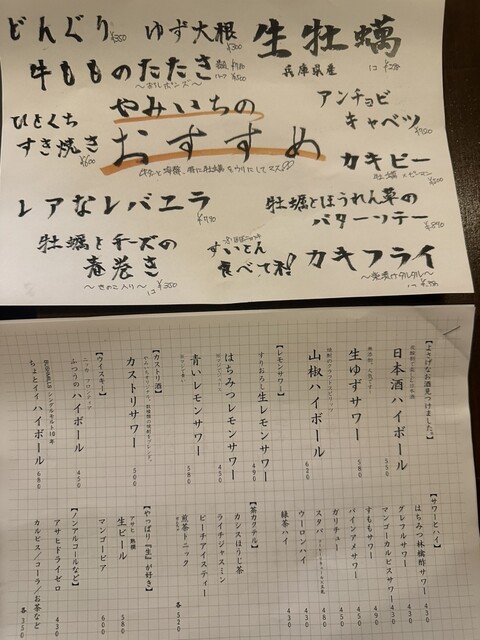 どんぐり ¥350
ゆず大根 ¥300
生牡蠣
兵庫県産
牛もものたたき
ハーフ ¥500
やみいちの
おすすめ
アンチョビ
キャベツ
ひとくち
すき焼き ¥600
カキピー
レアなレバエラ
牡蠣とほうれん草の
バターソテー
牡蠣とチーズの
春巻き
〜きのこ入り〜 1コ ¥350
すいとん
食べて来!
カキフライ
【よさげなお酒見つけました。】
日本酒ハイボール 550
生ゆずサワー 580
山椒ハイボール 620
【レモンサワー】
すりおろし生レモンサワー 490
はちみつレモンサワー 450
青いレモンサワー 580
【カストリ酒】
カストリサワー 500
【ウイスキー】
ふつうのハイボール 450
シングルモルト10年
ちょとイイ ハイボール 680
【サワーとハイ】
はちみつ林檎酢サワー 430
グレフルサワー 430
マンゴーカルピスサワー 430
すももサワー 490
パインアメサワー 450
ガリチュー 480
スタバ 450
ウーロンハイ 430
緑茶ハイ 430
【茶カクテル】
カシスほうじ茶
ライチジャスミン
ピーチアイスティー
煎茶トニック
各520
【やっぱり『生』が好き】
アサヒ 熟撰
生ビール 580
マンゴービア 600
【ノンアルコールなど】
アサヒドライゼロ 430
カルピス／コーラ／お茶など 各350